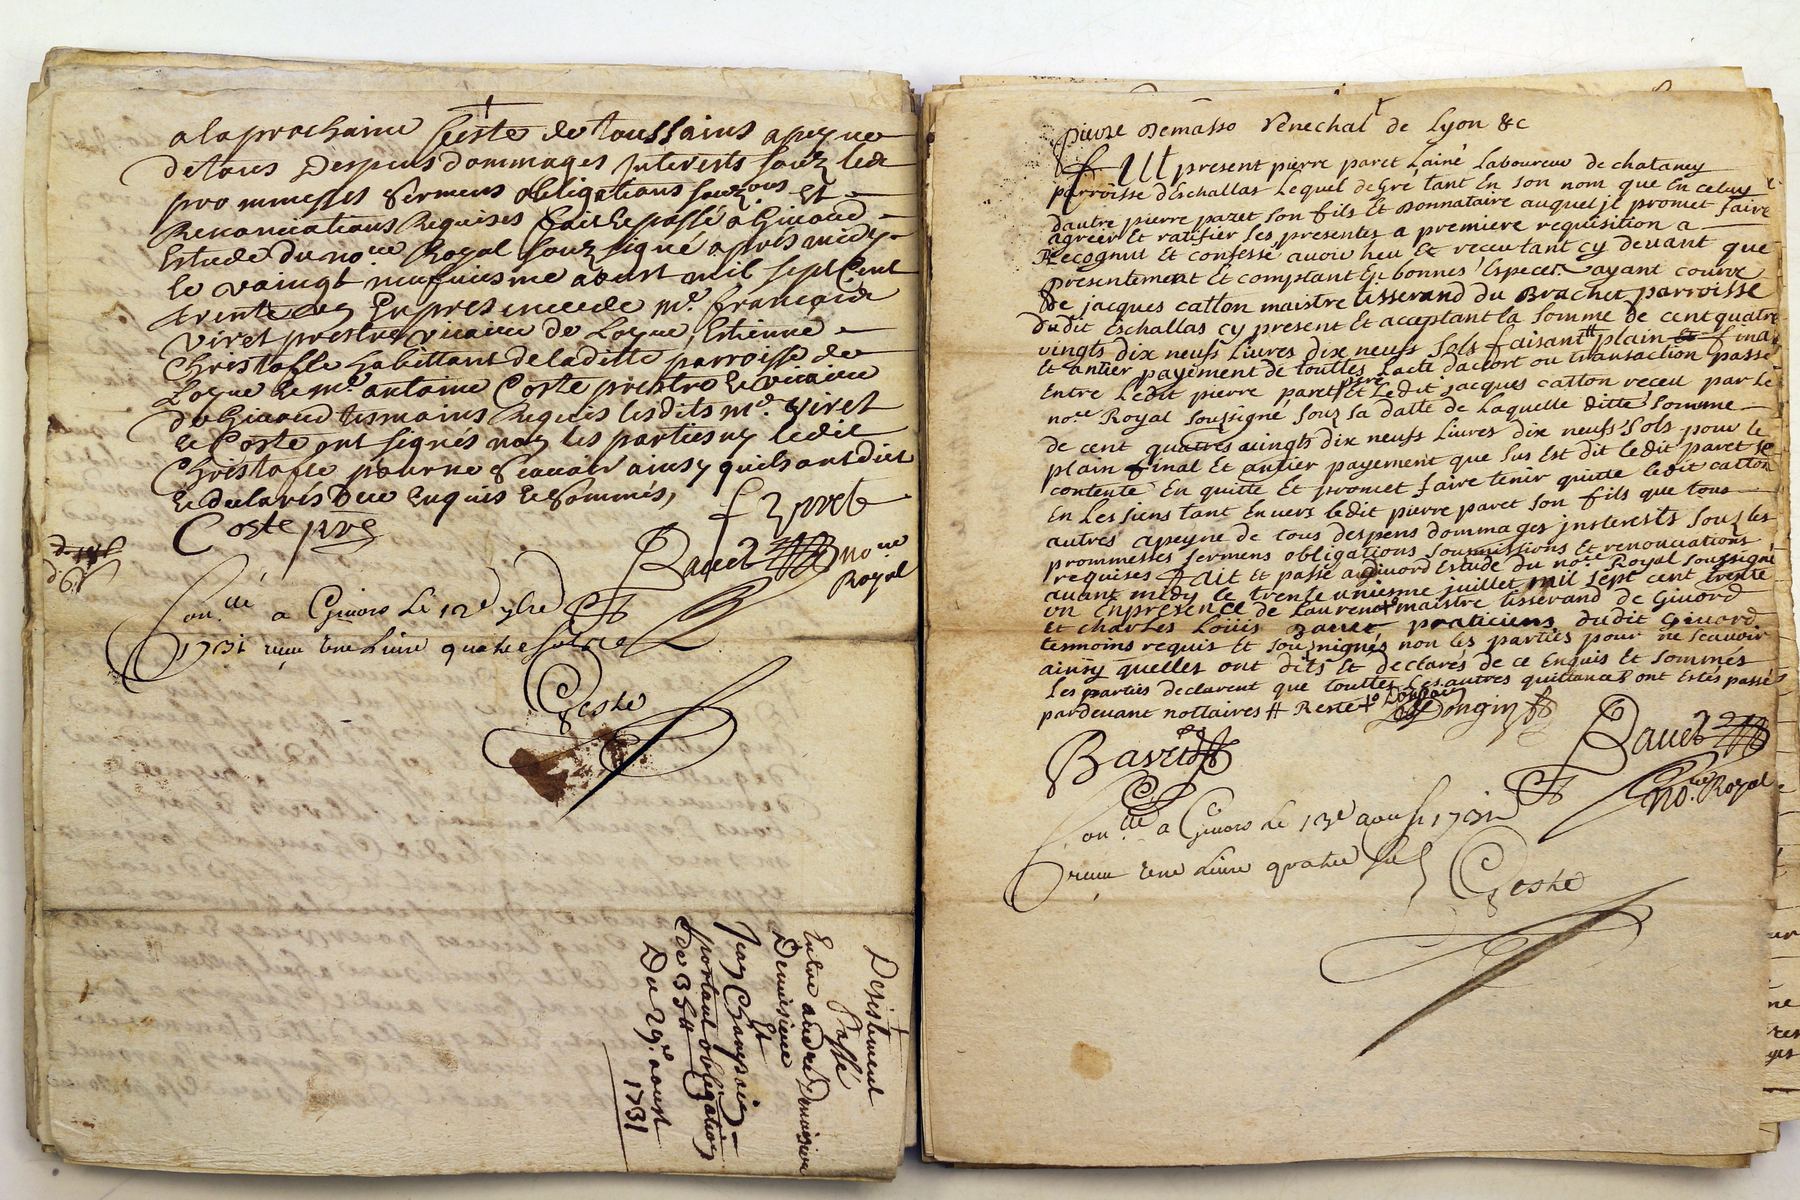 a la prochaine feste de toussains a peyne
de tous despens dommages interests souz leds
prommesses sermens obligations souzons et
Renonciations Requises fait et passé a Giuord
Estude du nore Royal souz signé aprés midy
le vaingt neufuiesme aoust mil sept Cent
trente un En presence de me. françois
viret prestre vicaire de Loyre, Estienne
Christofle habittant de laditte parroisse de
Loyre et me antoine Coste prestre et vicaire
de Giuord tesmoins Requis lesdits me. viret
et Coste ont signés non les parties ny ledit
Christofle pour ne scauoir ainsy quils ont dict
et declarés Dece enquis et sommés,
f viret
Coste ptre
Bauet nore
Royal
Con.llé a Giuors Le 12e 7bre
1731 receu une Liure quatre sols
Geste
Desistement
Passé
Entre andré Denuisiere
Denuisiere
Et
Jean Champain
portant obligation
de 35tt
Du 29e. aoust
1731
pierre Demasso senechal de Lyon &c
Fut present pierre paret Lainé Laboureur de chataney
parroisse dEschallas Lequel de gré tant En son nom que En celuy
dautre pierre paret son fils Et Donnataire auquel je promet faire
agreer Et ratifier ses presentes a premiere requisition a
Recognut Et confessé auoir heu Et receu tant cy deuant que
presentement Et comptant En bonnes Especes ayant cours
De jacques catton maistre tisserand du Brachet parroisse
dudit Eschallas cy present Et acceptant la somme de cent quatre
vingts dix neufs Liures dix neufs sols faisant plain et final
Et antier payement de touttes Lacte dacort ou transaction passé
Entre Ledit pierre paret pere Et Ledit jacques catton receu par le
nore. Royal sousigné souz sa datte de Laquelle ditte somme
de cent quatres uingts dix neufs Liures dix neufs sols pour le
plain final Et antier payement que sus Est dit ledit paret se
contente En quitte Et promet faire tenir quitte ledit catton
En Les siens tant Enuers ledit pierre paret son fils que tous
autres apeyne de tous despens dommages jnsterests souz les
prommesses sermens obligations soumissions Et renonciations
requises fait Et passé audit Giuord Estude du nore. Royal soussigné
auant midy le trente uniesme juillet mil sept cent trente
un En presence de Laurens maistre tisserand de Giuord
Et charLes Loüis Bauet praticiens dudit Giuord
tesmoins requis Et sousignés non les parties pour ne scauoir
ainsy quelles ont dits Et declarés de ce Enquis Et sommés
Les parties declarent que touttes Les autres quittances ont Estés passés
pardeuant nottaires
Dongin
Bauet
Bauet
nore Royal
Con.llé a Giuors Le 13e aoust 1731
receu une Liure quatre sols
Geste